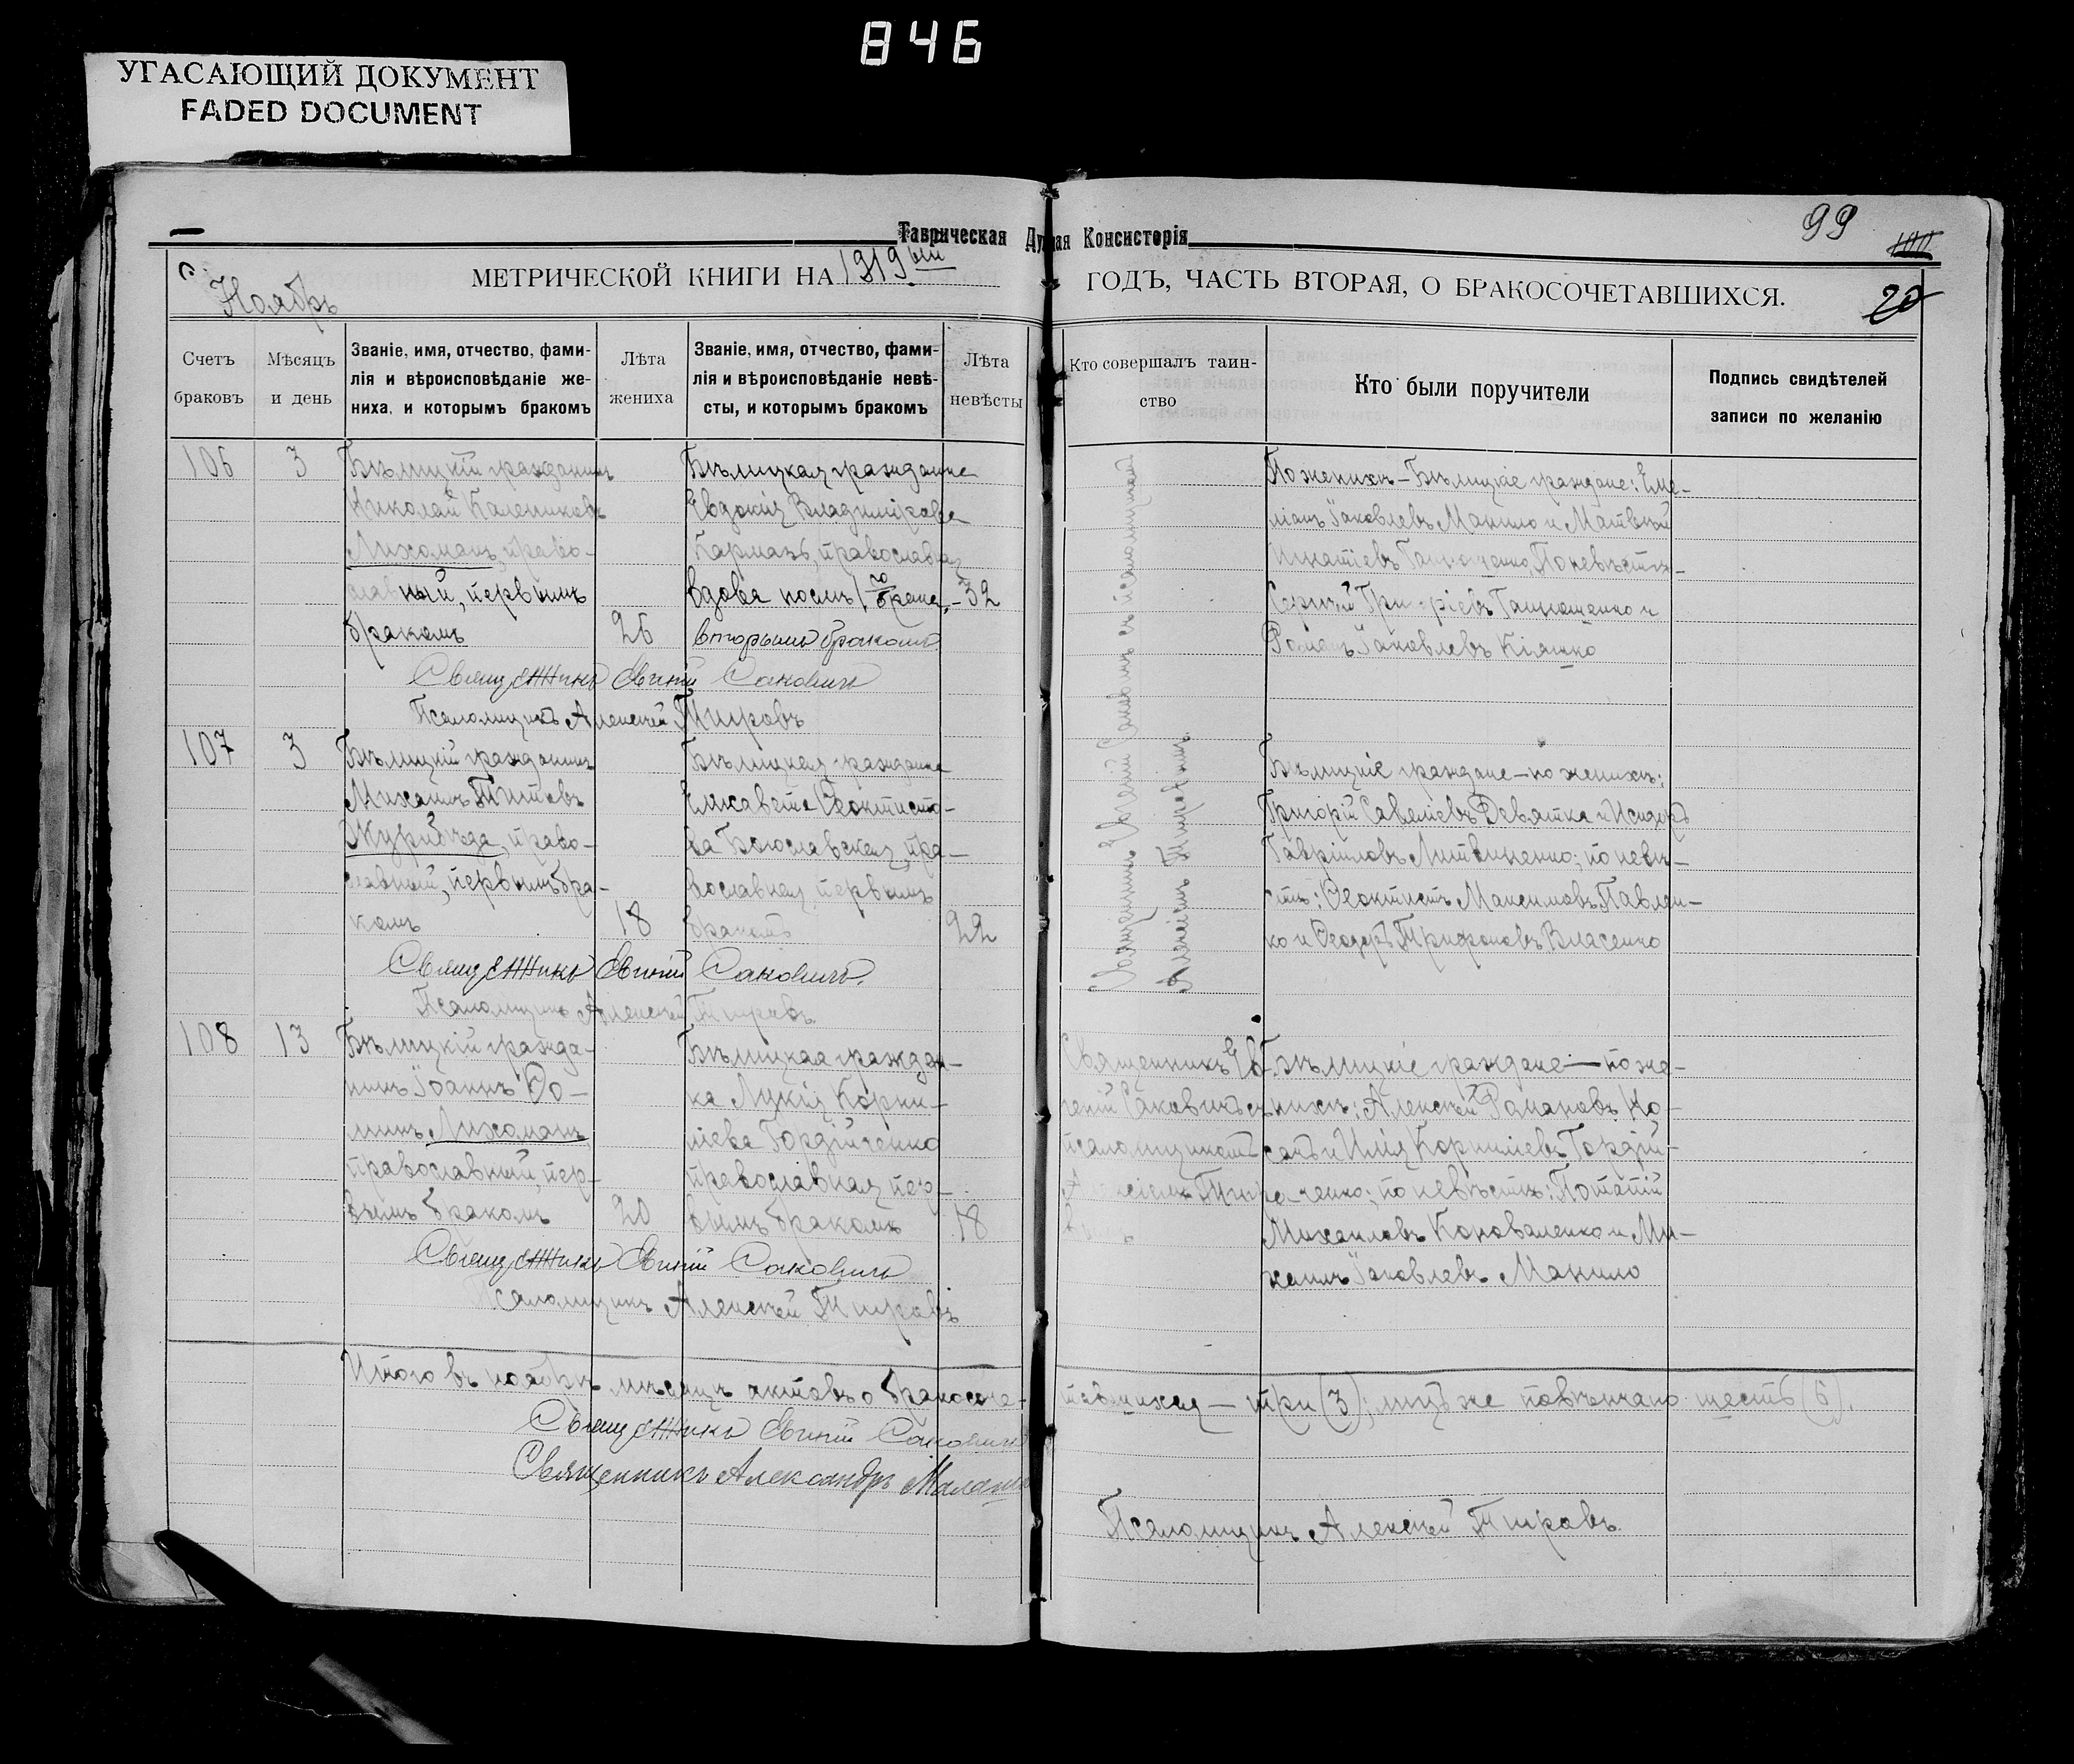 846
УГАСАЮЩИЙ ДОКУМЕНТ
FADED DOCUMENT
Таврическая Ду ная Консисторія
99
100
20
Ноябрь
МЕТРИЧЕСКОЙ КНИГИ НА 1919ый ГОДЪ, ЧАСТЬ ВТОРАЯ, О БРАКОСОЧЕТАВШИХСЯ.
Счетъ браковъ
Мѣсяцъ и день
Званіе, имя, отчество, фами-
лія и вѣроисповѣданіе же-
ниха, и которымъ бракомъ
Лѣта жениха
Званіе, имя, отчество, фами-
лія и вѣроисповѣданіе невѣ-
сты, и которымъ бракомъ
Лѣта невѣсты
Кто совершалъ таин-
ство
Кто были поручители
Подпись свидѣтелей
записи по желанію
106
3
Бѣлицкій гражданинъ
Николай Калениковъ
Лихоманъ, право-
славный, первымъ
бракомъ
26
Бѣлицкая гражданка
Евдокія Владимірова
Кармазъ, православная
вдова послѣ 1го брака,
вторымъ бракомъ
32
Священникъ Евгеній Саковичъ
Псаломщикъ Алексѣй Тировъ
Священникъ Евгеній Саковичъ съ псаломщикомъ
Алексѣемъ Тировымъ
По женихѣ – Бѣлицкіе граждане: Еме-
ліанъ Іаковлевъ Манило и Матвѣй
Игнатіевъ По невѣстѣ –
Сергѣй Григоріевъ и
Романъ Іаковлевъ Кіяшко
107
3
Бѣлицкій гражданинъ
Михаилъ Титовъ
Журибѣда, право-
славный, первымъ бра-
комъ
18
Бѣлицкая гражданка
Елисавета Ѳеоктисто-
ва Богославская, пра-
вославная, первымъ
бракомъ
22
Священникъ Евгеній Саковичъ.
Псаломщикъ Алексѣй Тировъ
Бѣлицкіе граждане – по женихѣ:
Григорій Савеліевъ Девятка и Исидоръ
Гавріиловъ Литвиненко; по невѣ-
стѣ: Ѳеоктистъ Максимовъ Павлен-
ко и Ѳеодоръ Трифоновъ Власенко
108
13
Бѣлицкій гражда-
нинъ Іоаннъ Ѳо-
минъ Лихоманъ,
православный, пер-
вымъ бракомъ
20
Бѣлицкая граждан-
ка Лукія Корни-
ліева Гордійченко
православная пер-
вымъ бракомъ
18
Священникъ Ев-
геній Саковичъ съ
псаломщикомъ
Алексіемъ Тиро-
вымъ
Бѣлицкіе граждане – по же-
нихѣ: Алексѣй Романовъ Ко-
сапъ и Илія Корниліевъ Гордій-
ченко; по невѣстѣ: Потапій
Михаиловъ Коноваленко и Ми-
хаилъ Іаковлевъ Манило
Священникъ Евгеній Саковичъ
Псаломщикъ Алексѣй Тировъ
Итого въ ноябрѣ мѣсяцѣ актовъ о бракосоче-
тавшихся – три (3); лицъ же повѣнчано шесть (6).
Священникъ Евгеній Саковичъ
Священникъ Александръ
Псаломщикъ Алексѣй Тировъ